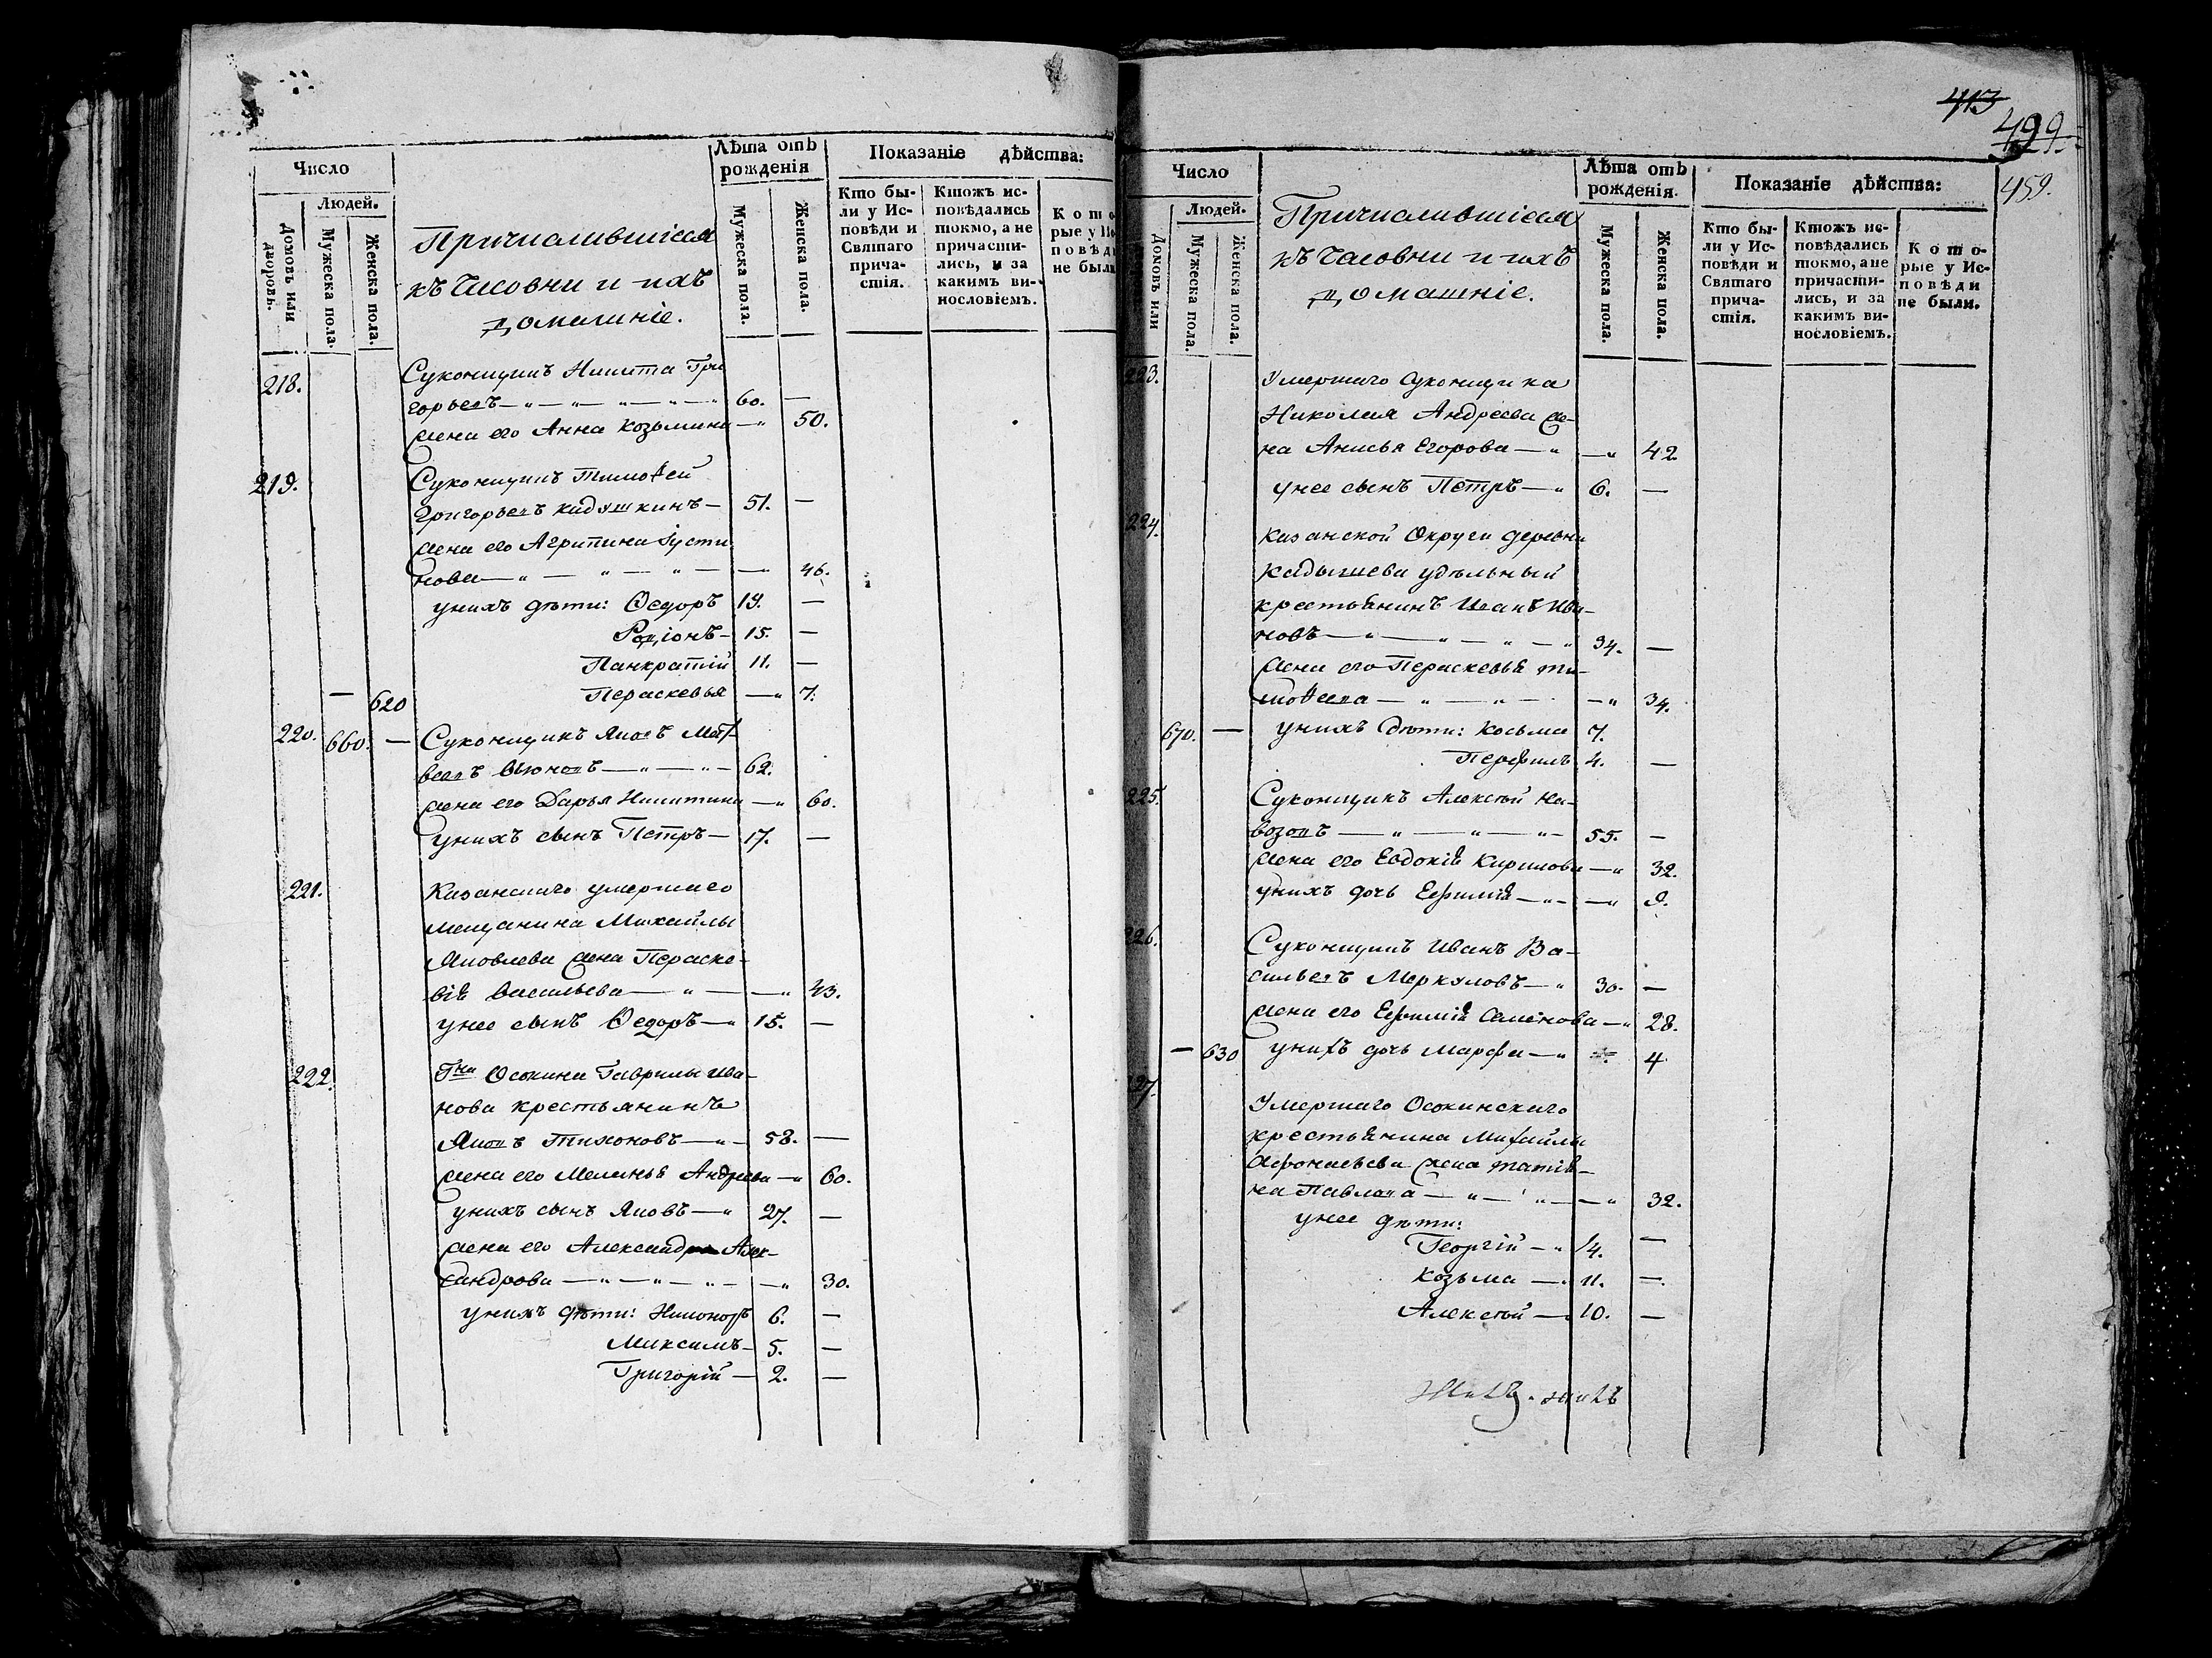 Число
Людей.
Домовъ или дворовъ.
Мужеска пола.
Женска пола.
Причислившіеся
къ Часовни и ихъ
домашніе.
Лѣта отъ рожденія
Мужеска пола.
Женска пола.
Показаніе дѣйства:
Кто бы-
ли у Ис-
повѣди и
Святаго
прича-
стія.
Ктожъ ис-
повѣдались
токмо, а не
причасти-
лись, и за
какимъ ви-
нословіемъ.
218. Суконщикъ Никита Гри
горьевъ — " — " — " — " — " 60. —
жена его Анна Козьмина — " 50.
219. Суконщикъ Тимоѳей
Григорьевъ Кадушкинъ — 51. —
жена его Агрипина Іусти
нова — " — " — " — — 46.
унихъ дѣти: Ѳедоръ 19. —
Родіонъ — 15. —
Панкратій 11. —
— 620 Пераскевья — " 7.
220. 660. — Суконщикъ Яковъ Мат
веевъ Вьюновъ — " — " — 62.
жена его Дарья Никитина — " 60.
унихъ сынъ Петръ — 17. —
221. Казанскаго умершаго
мещанина Михайлы
Яковлева жена Параске-
вія Васильева — " — — " 43.
унее сынъ Ѳедоръ — " 15. —
222. Гна Осокина Гаврилы Ива-
нова крестьянинъ
Яковъ Тихоновъ — " — 58. —
жена его Меланья Андреева — " 60.
унихъ сынъ Яковъ — " 27. —
жена его Александра Алек-
сандрова — " — " — " — — " 30.
унихъ дѣти: Никоноръ 6. —
Максимъ — 5. —
Григорій — 2. —
413
499.
459.
Число
Людей.
Домовъ или
Мужеска пола.
Женска пола.
Причислившіеся
къ Часовни и ихъ
домашніе.
Лѣта отъ рожденія.
Мужеска пола.
Женска пола.
Показаніе дѣйства:
Кто бы-
ли у Ис-
повѣди и
Святаго
прича-
стія.
Ктожъ ис-
повѣдались
токмо, а не
причасти-
лись, и за
какимъ ви-
нословіемъ.
Кото-
рые у Ис-
повѣди
не были.
223. Умершаго Суконщика
Николая Андреева же-
на Анисья Егорова — " — " 42
унее сынъ Петръ — " 6. —
224. Казанской Округи деревни
Кадышева удѣльный
крестьянинъ Иванъ Ива-
новъ — " — " — " — " 34. —
жена его Пераскевья Ти-
моѳеева — " — " — — " 34.
670. — унихъ дѣти: Косьма 7.
Перфилъ 4. —
225. Суконщикъ Алексѣй На-
возовъ — " — " — " — 55. —
жена его Евдокія Кирилова — " 32.
унихъ дочь Ефимія — " — — " 9.
226. Суконщикъ Иванъ Ва-
сильевъ Меркуловъ — " 30. —
жена его Ефимія Семенова — " 28.
— 630 унихъ дочь Марфа — " 4
227. Умершаго Осокинскаго
крестьянина Михайлы
Афонасьева жена Татія-
на Павлова — " — " — — " 32.
унее дѣти:
Георгій — " 14. —
Козьма — " 11. —
Алексѣй — 10. —